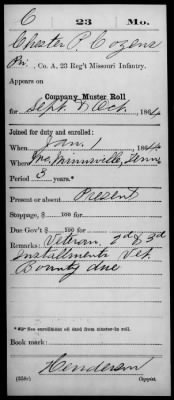 C 23 Mo.
Chester P. Cozens
Pri, Co. A, 23 Reg't Missouri Infantry.
Appears on
Company Muster Roll
for Sept. & Oct., 1864
Joined for duty and enrolled:
When Jan. 1, 1864
Where Tenn.
Period 3 years.*
Present or absent Present
Stoppage, $ 100 for
Due Gov't $ 100 for
Remarks: Veteran, 2d & 3d
Installments Vet.
Bounty due
*See enrollment on card from muster-in roll.
Book mark:
Henderson
(358c) Copyist.